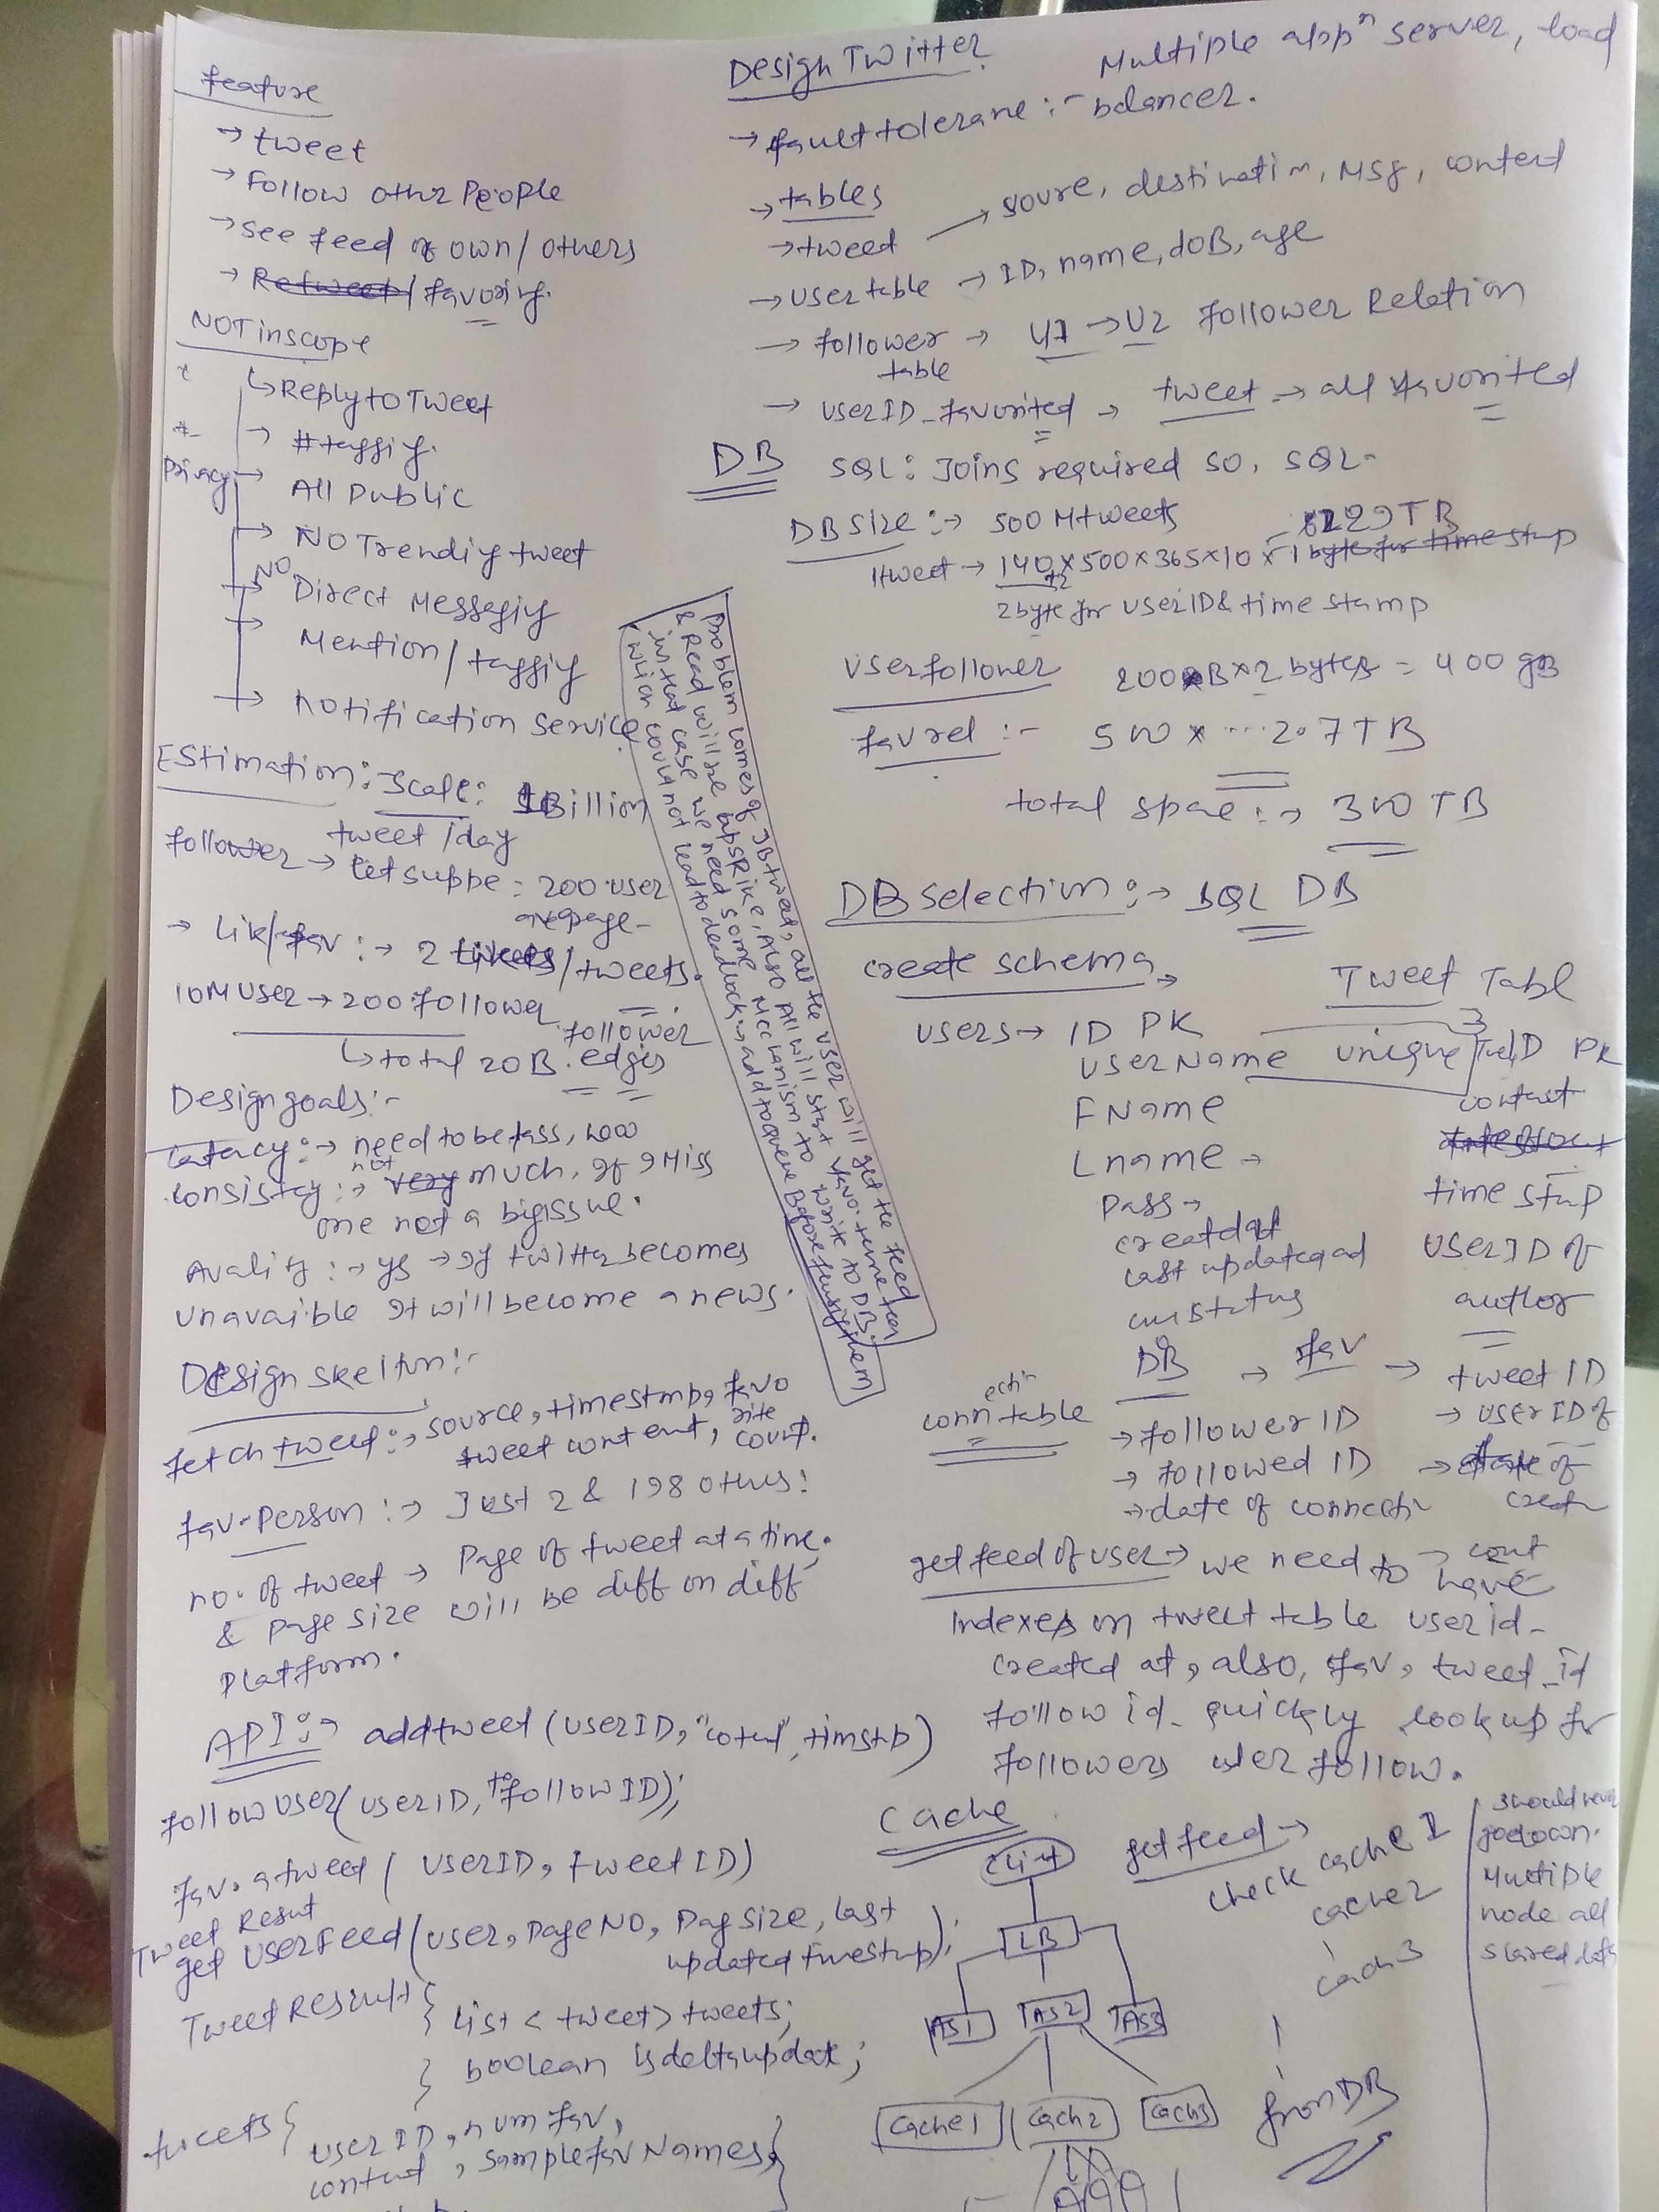 Design Twitter
feature
→ tweet
→ Follow other People
→ see feed of own/others
→ Retweet/favoring.
NOT inscope
↳ Reply to Tweet
→ #taggig.
Privacy → All Public
→ NO Trendig tweet
NO Direct Messagig
→ Mention/taggig
→ notification service
Estimation: Scale: 1Billion
tweet/day
follower → let suppe = 200 user
→ Lik/fav :→ 2 likees/tweets.
10M user → 200 follower
follower
↳ total 20B. edges
Design goals:-
Latacy :→ need to be fass,
consistcy :→ not very much, If I Miss
one not a big issue.
Avality :→ ys → If twitter becomes
unavaible It will become a news.
Design skeltun:-
fetch tweet :→ source, timestmp, favo
rite
tweet content, count.
fav-Person :→ Just 2 & 198 others!
no. of tweet → Page of tweet at a time.
& page size will be diff on diff
Platform.
API :→ addtweet (userID, "cotent", timstp)
followuser(userID, to followID);
fav. a tweet ( userID, tweetID)
Tweet Result
get userfeed(user, pageNO, PagSize, last
updated timestup);
TweetResult {
List < tweet > tweets;
} boolean isdeltaupdate;
tweets {
userID, num fav,
content, samplefavNames }
Problem comes of 1B tweet, all the user will get the feed
& Read will be upspike, Also All will start favo. tune too
in that case we need some Mechanism to write to DB.
which could not lead to deadlock → add to queue Before fusig them
Multiple appn server, load
→ fault tolerane :- balancer.
→ tables
→ tweet → soure, destinatin, Msg, content
→ user table → ID, name, doB, age
→ follower → U1 → U2 follower Relation
table
→ userID_favorited → tweet → all favorited
DB SQL : Joins required so, SQL-
DB Size :→ 500 M tweets
1tweet → 140 x 500 x 365 x 10 x 1 byte for time stup
+2
2 byte for userID & time stamp
user follower 200B x 2 bytes = 400 gB
fav rel :- 500 x ... 2.7 TB
total spae :→ 300 TB
DB selection :→ SQL DB
create schema →
users → ID PK
userName unique
FName
Lname →
Pass →
createdat
last updateqad
Tweet Tabl
ID PK
time stup
userID of
author
DB → fav → tweet ID
→ userID of
→ date of
creatn
connectin table
→ followerID
→ followed ID
→ date of connectn
get feed of user → we need to have
Indexes on tweet table user id-
created at, also, fav, tweet_id
follow id- quickly lookup for
followers user follow.
Cache
client
LB
AS1 AS2 AS3
Cache1 Cach2 Cach3
get feed →
check cache 1
cache2
cach3
from DB
should never
go down.
Multiple
node all